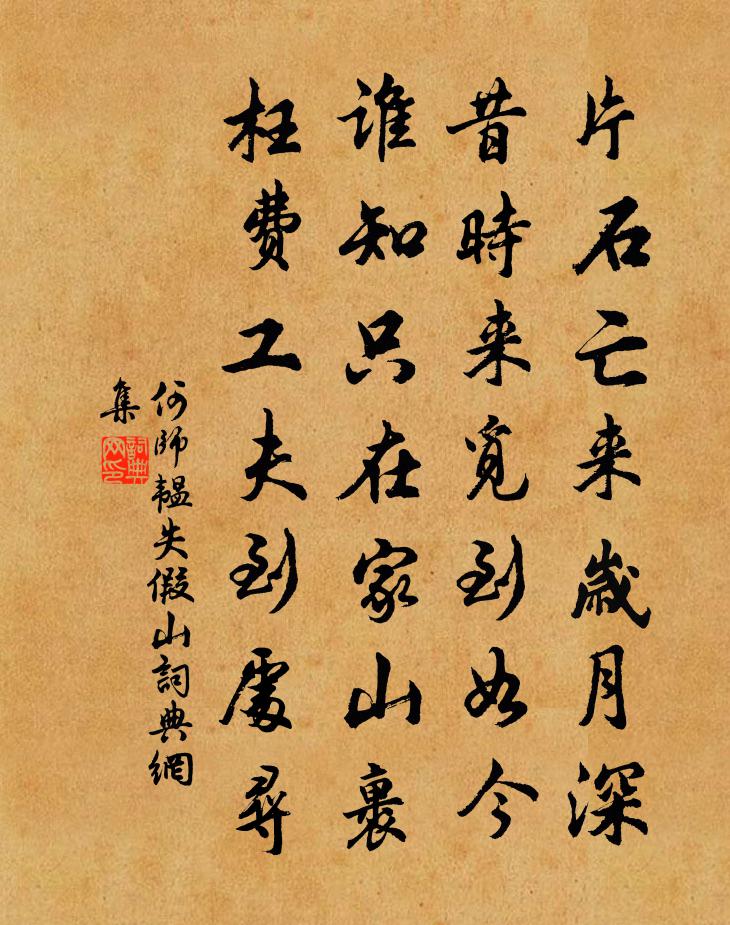 片石亡来歲月深
昔時来覓到如今
谁知只在家山裏
枉费工夫到處尋
何師韞失假山詞典網
集
詞典網印